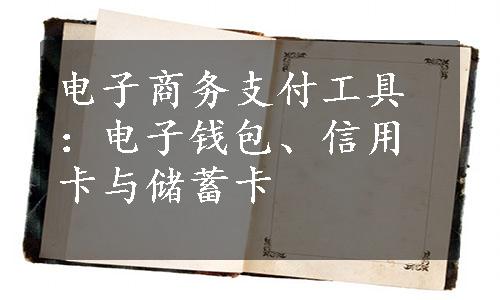 电子商务支付工具
：电子钱包、信用
卡与储蓄卡